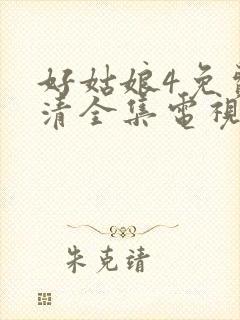 好姑娘4免
清全集電視
朱克靖